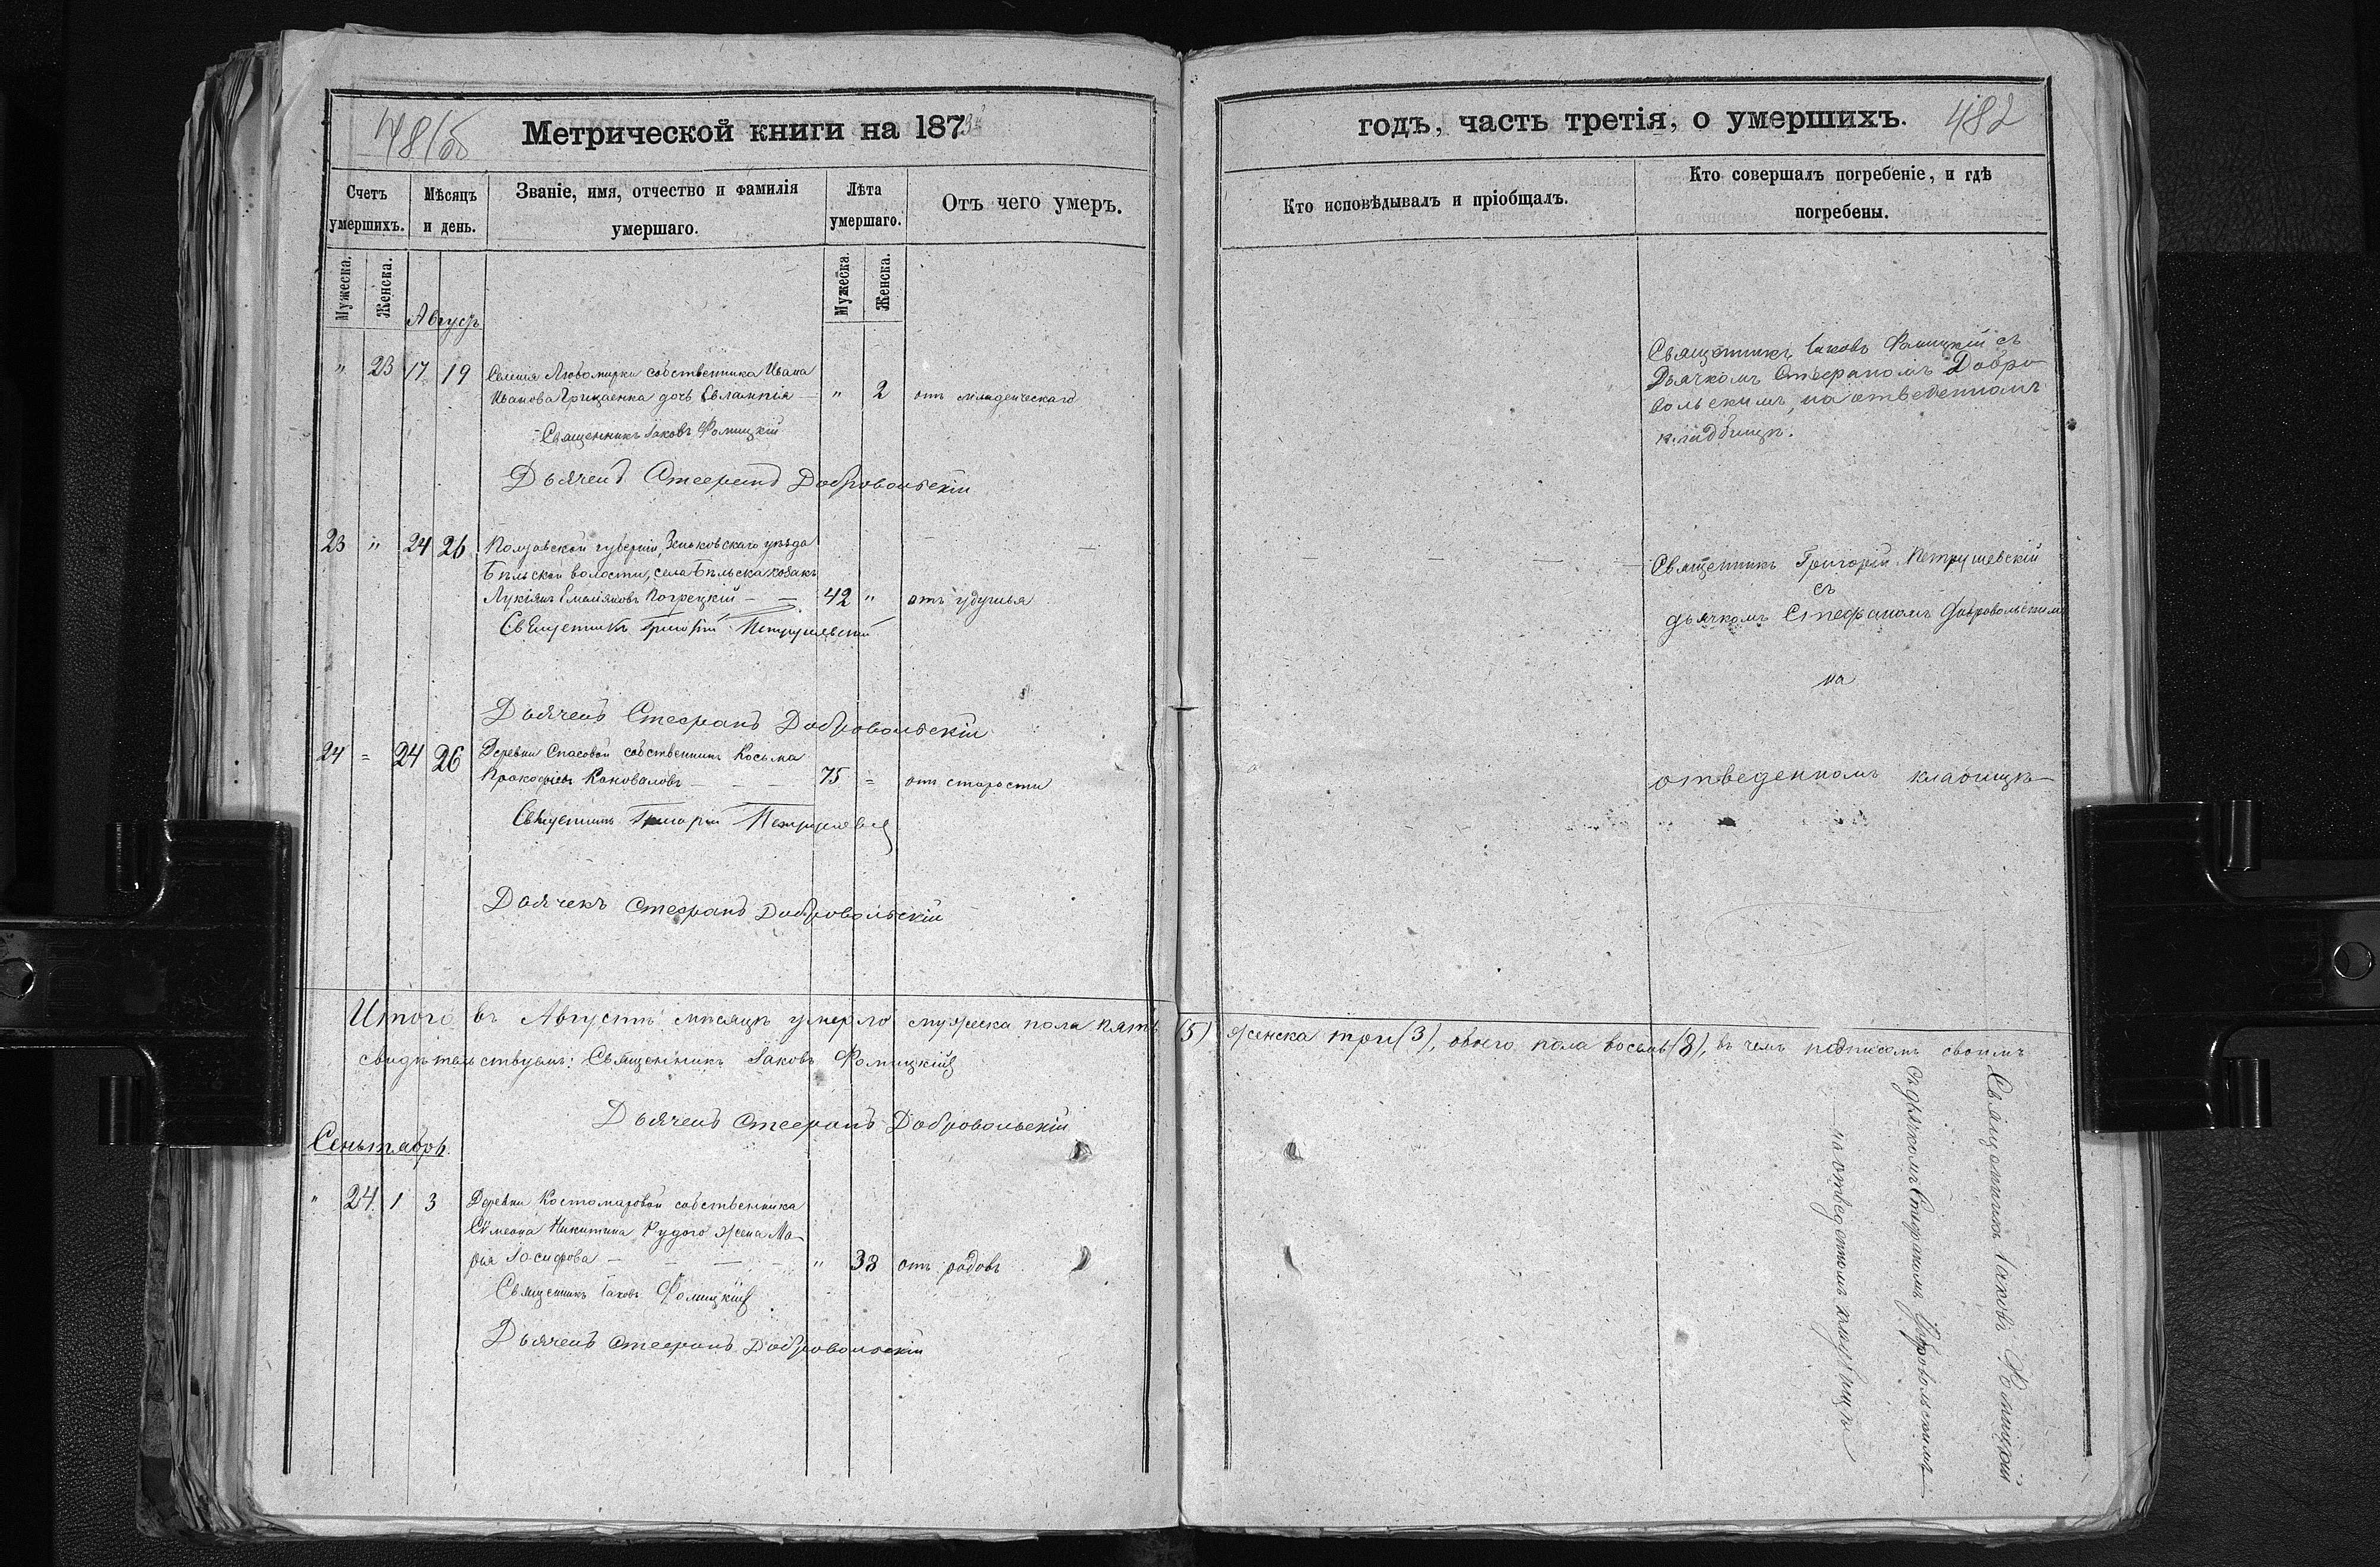 481об
Метрической книги на 1873й
Счетъ умершихъ.
Мѣсяцъ и день.
Званіе, имя, отчество и фамилія умершаго.
Лѣта умершаго.
Отъ чего умеръ.
Мужеска.
Женска.
Мужеска.
Женска.
Августъ
" 23 17 19 Селенія Любомирки собственника Ивана
Иванова Грицаенка дочь Евлампія — " 2 отъ младенческаго
Священникъ Іаковъ Фомицкій
Дьячекъ Стефанъ Добровольскій
23 " 24 26 Полтавской губерніи, Зеньковскаго уѣзда
Бѣльской волости, села Бѣльска козакъ
Лукіянъ Емеліяновъ Погрецкій — — 42 " отъ удушья
Священникъ Григорій Петрушевскій
Дьячекъ Стефанъ Добровольскій
24 = 24 26 Деревни Спасовой собственникъ Косьма
Прокофіевъ Коноваловъ — — — 75 = отъ старости
Священникъ Григорій Петрушевскій
Дьячекъ Стефанъ Добровольскій
Итого въ Августѣ мѣсяцѣ умерло мужеска пола пять (5)
свидѣтельствуемъ: Священникъ Іаковъ Фомицкій
Дьячекъ Стефанъ Добровольскій
Сеньтябрь.
" 24 1 3 Деревни Костомаровой собственника
Сѵмеона Никитина Рудого жена Ма-
рія Іосифова — — — — " 38 отъ родовъ
Священникъ Іаковъ Фомицкій
Дьячекъ Стефанъ Добровольскій
годъ, часть третія, о умершихъ.
482
Кто исповѣдывалъ и пріобщалъ.
Кто совершалъ погребеніе, и гдѣ погребены.
Священникъ Іаковъ Фомицкій съ
Дьячкомъ Стефаномъ Добро
вольскимъ, на отведенномъ
кладбищѣ.
Священникъ Григорій Петрушевскій
съ
дьячкомъ Стефаномъ Добровольскимъ
на
отведенномъ кладбищѣ
женска три (3), обоего пола восемь (8), въ чемъ подписомъ своимъ
Священникъ Іаковъ Фомицкій
съ дьячкомъ Стефаномъ Добровольскимъ
на отведенномъ кладбищѣ